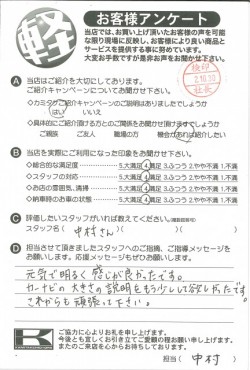 軽
お客様アンケート
当店では、お買い上げ頂いたお客様の声を可能
な限り現場に反映し、お客様により良い商品と
サービスを提供する事に努めています。
大変お手数ですが是非お声をお聞かせ下さい。
A 当店はご紹介を大切にしてあります。
ご紹介キャンペーンについてお聞かせ下さい。
◇カミタケご紹介キャンペーンのご説明はありましたでしょうか
はい いいえ
◇具体的にご紹介頂ける方とのご関係をお聞かせ頂けますでしょうか
ご親族 ご友人 職場の方 機会があれば紹介したい
B 当店を実際にご利用になった印象をお聞かせ下さい。
◇総合的な満足度 5.大満足 4.満足 3.ふつう 2.やや不満 1.不満
◇スタッフの対応 5.大満足 4.満足 3.ふつう 2.やや不満 1.不満
◇お店の雰囲気、清掃 5.大満足 4.満足 3.ふつう 2.やや不満 1.不満
◇納車時のお車の状態 5.大満足 4.満足 3.ふつう 2.やや不満 1.不満
C 評価したいスタッフがいれば教えてください。
スタッフ名( 中村さん )
D 担当させて頂きましたスタッフへのご指摘、ご指導メッセージを
お願いします。応援メッセージもぜひお願いします。
元気で明るく感じが良かったです。
カーナビの大きさの説明をもう少しして欲しかったです。
これからも頑張って下さい。
K
ご協力に心よりお礼を申し上げます。
今後とも宜しくお引き立てご愛顧の程お願い申し上げます。
またのご来店を心からお待ちしております。
担当( 中村 )